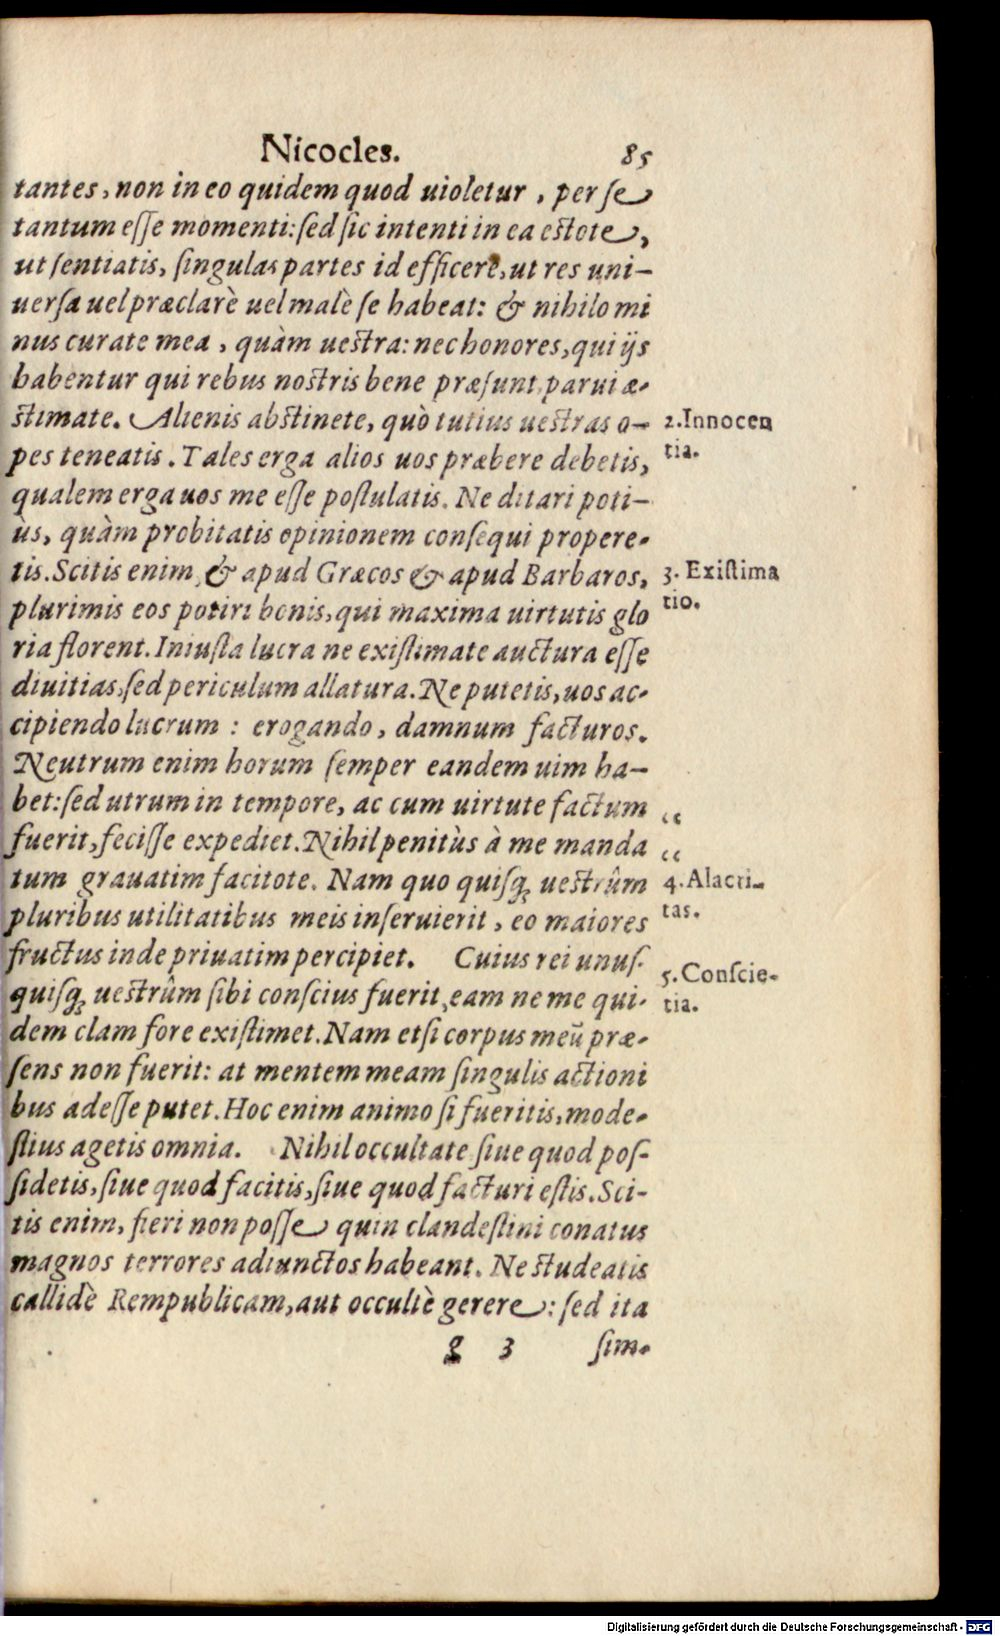 Nicocles. 85
tantes, non in eo quidem quod uioletur, per se
tantum eſſe momenti: ſed ſic intenti in ea eſtote,
ut ſentiatis, ſingulas partes id efficere, ut res uni-
uerſa uel præclarè uel malè ſe habeat: & nihilo mi
nus curate mea, quàm ueſtra: nec honores, qui ijs
habentur qui rebus noſtris bene præſunt, parui æ-
ſtimate. Alienis abſtinete, quò tutius ueſtras o-
2. Innocen
pes teneatis. Tales erga alios uos præbere debetis,
tia.
qualem erga uos me eſſe poſtulatis. Ne ditari poti-
ùs, quàm probitatis opinionem conſequi propere-
tis. Scitis enim, & apud Græcos & apud Barbaros,
3. Exiſtima
plurimis eos potiri bonis, qui maxima uirtutis glo
tio.
ria florent. Iniuſta lucra ne exiſtimate auctura eſſe
diuitias, ſed periculum allatura. Ne putetis, uos ac-
cipiendo lucrum: erogando, damnum facturos.
Neutrum enim horum ſemper eandem uim ha-
bet: ſed utrum in tempore, ac cum uirtute factum
“
fuerit, feciſſe expediet. Nihil penitùs à me manda
“
tum grauatim facitote. Nam quo quiſq; ueſtrûm
4. Alacri-
pluribus utilitatibus meis inſeruierit, eo maiores
tas.
fructus inde priuatim percipiet. Cuius rei unuſ-
5. Conſcie-
quiſq; ueſtrûm ſibi conſcius fuerit, eam ne me qui-
tia.
dem clam fore exiſtimet. Nam etſi corpus meũ præ-
ſens non fuerit: at mentem meam ſingulis actioni
bus adeſſe putet. Hoc enim animo ſi fueritis, mode-
ſtius agetis omnia. Nihil occultate ſiue quod poſ-
ſidetis, ſiue quod facitis, ſiue quod facturi eſtis. Sci-
tis enim, fieri non poſſe quin clandeſtini conatus
magnos terrores adiunctos habeant. Ne ſtudeatis
callidè Rempublicam, aut occultè gerere: ſed ita
g 3 ſim-
Digitalisierung gefördert durch die Deutsche Forschungsgemeinschaft - DFG